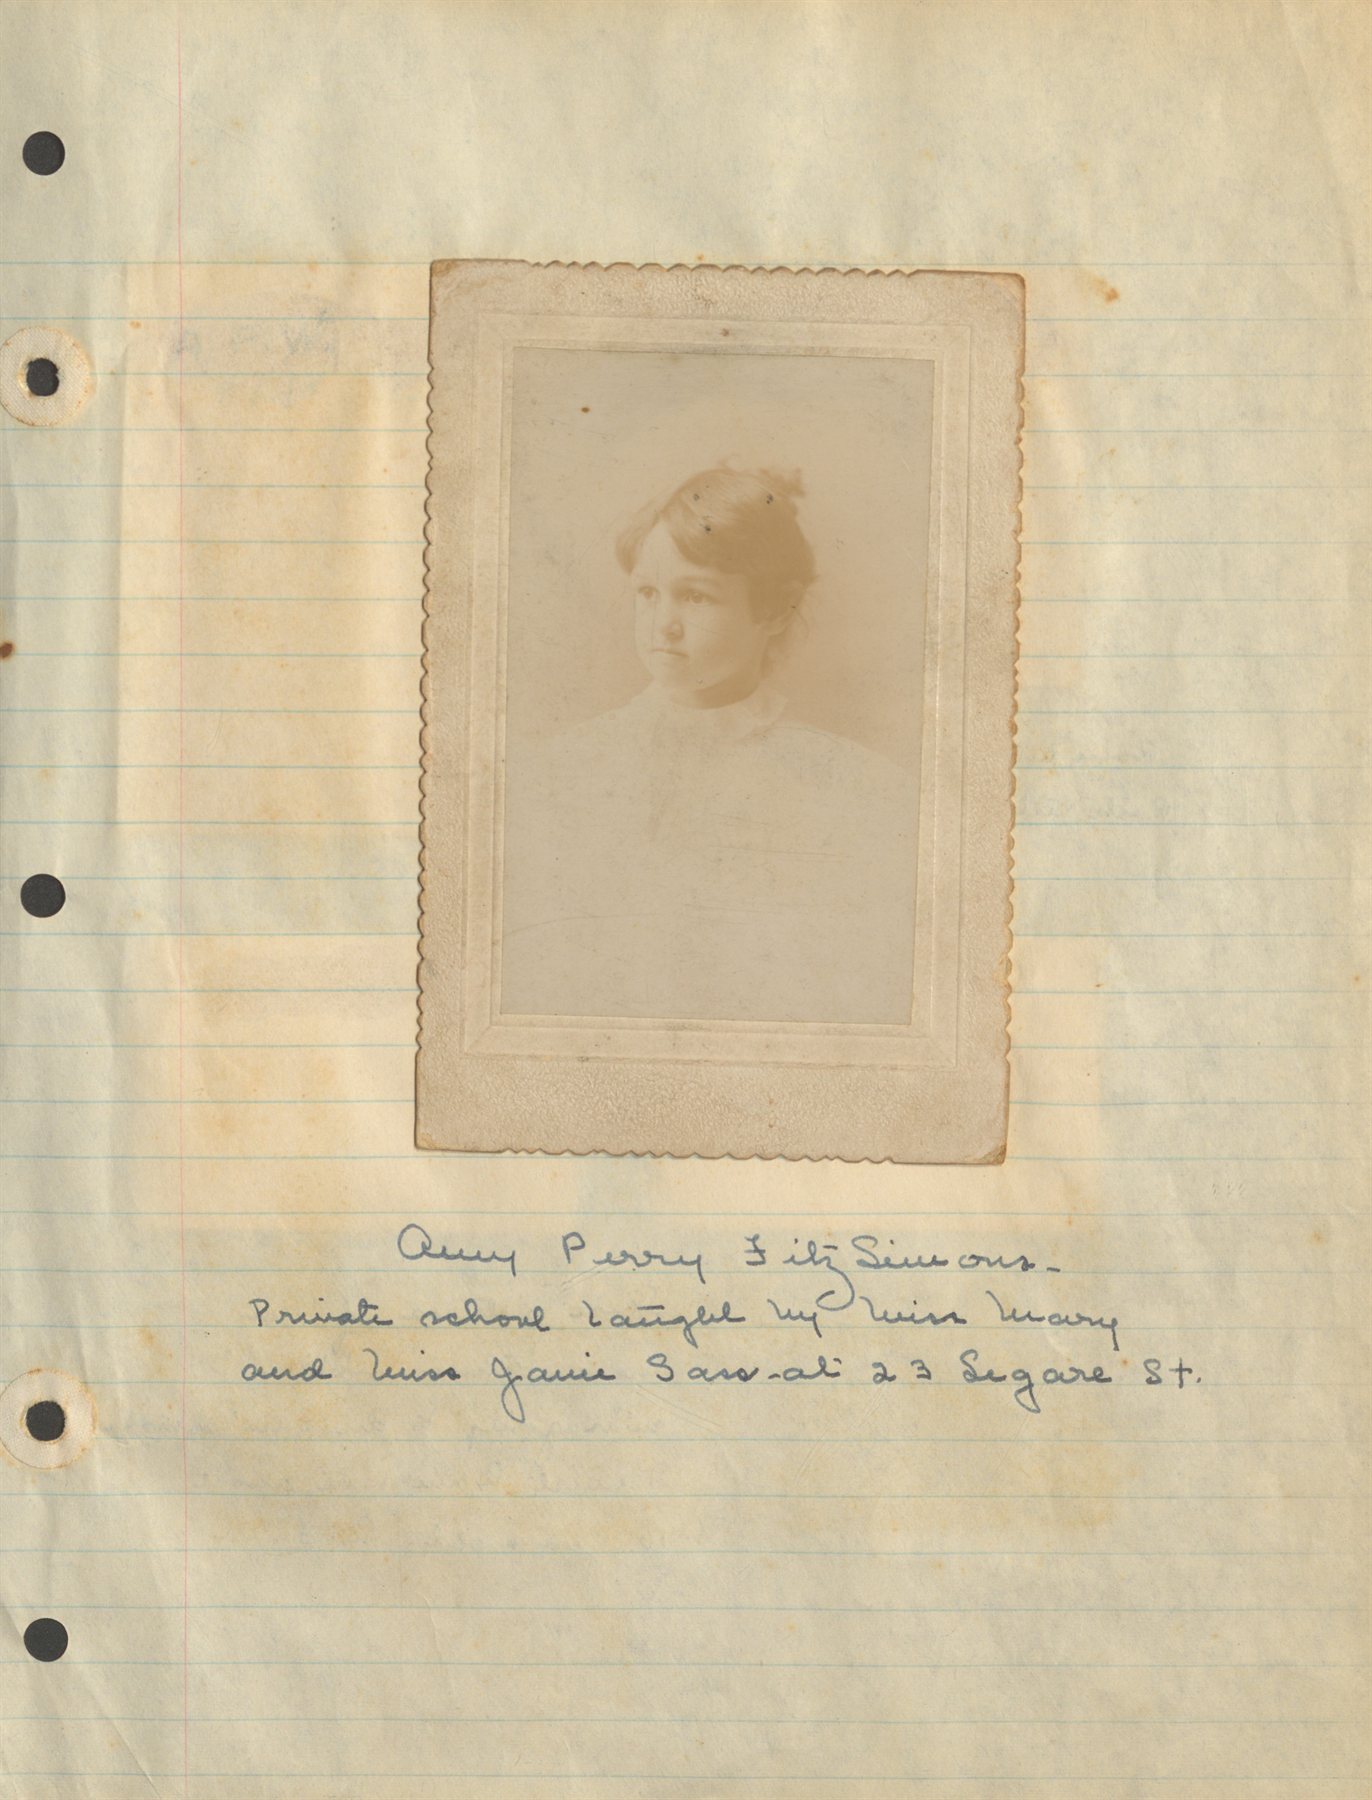 Amy Perry FitzSimons -
Private school taught by Miss Mary
and Miss Janie Sass - at 23 Legare St.